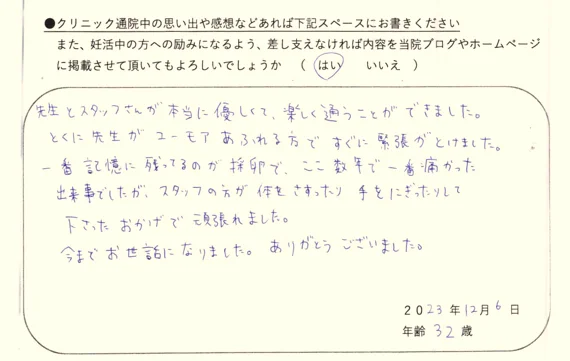 ●クリニック通院中の思い出や感想などあれば下記スペースにお書きください
また、妊活中の方への励みになるよう、差し支えなければ内容を当院ブログやホームページ
に掲載させて頂いてもよろしいでしょうか （ はい　いいえ ）
先生とスタッフさんが本当に優しくて、楽しく通うことができました。
とくに先生がユーモアあふれる方ですぐに緊張がとけました。
一番記憶に残ってるのが採卵で、ここ数年で一番痛かった
出来事でしたが、スタッフの方が体をさすったり手をにぎったりして
下さったおかげで頑張れました。
今までお世話になりました。ありがとうございました。
2023年12月6日
年齢 32 歳